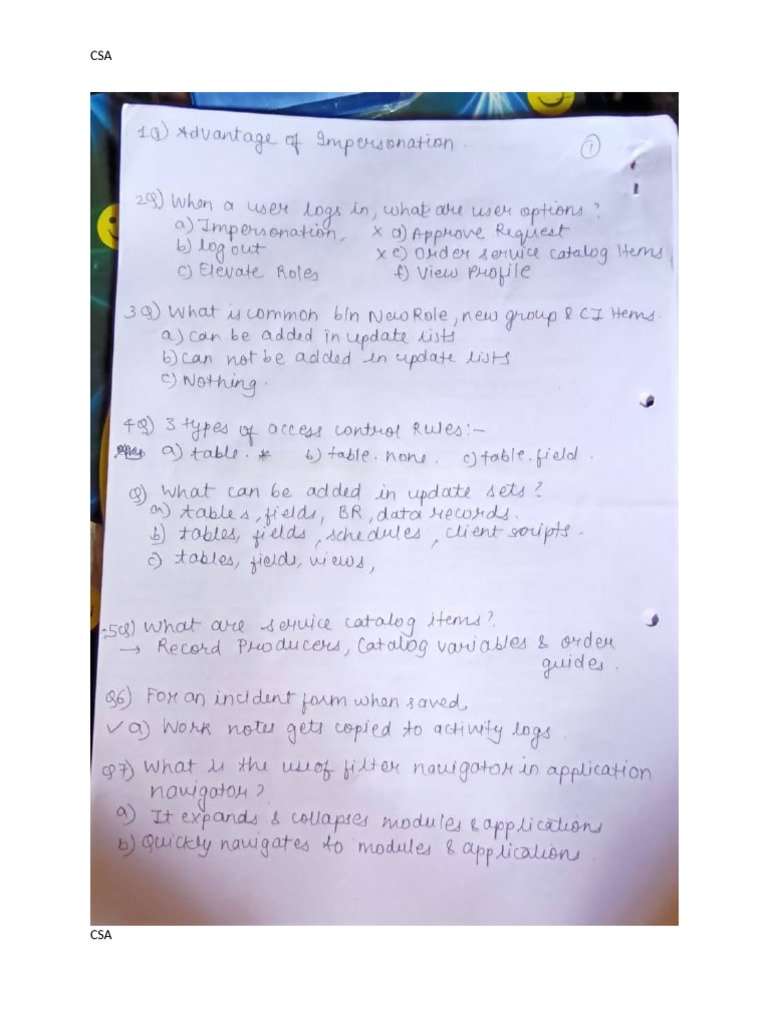 CSA
1Q) Advantage of Impersonation.
1
2Q) When a user logs in, what are user options?
a) Impersonation, x d) Approve Request
b) log out x e) Order service catalog Items
c) Elevate Roles f) View Profile
3Q) What is common b/n New Role, new group & CI Items.
a) can be added in update lists
b) can not be added in update lists
c) Nothing.
4Q) 3 types of access control Rules:-
a) table.* b) table.none. c) table.field.
Q) What can be added in update sets?
a) tables, fields, BR, data records.
b) tables, fields, schedules, client scripts.
c) tables, fields, views,
5Q) What are service catalog items?
→ Record Producers, Catalog variables & order
guides.
Q6) For an incident form when saved,
✓ a) Work notes gets copied to activity logs.
Q7) What is the use of filter navigator in application
navigator?
a) It expands & collapses modules & applications
b) Quickly navigates to modules & applications.
CSA